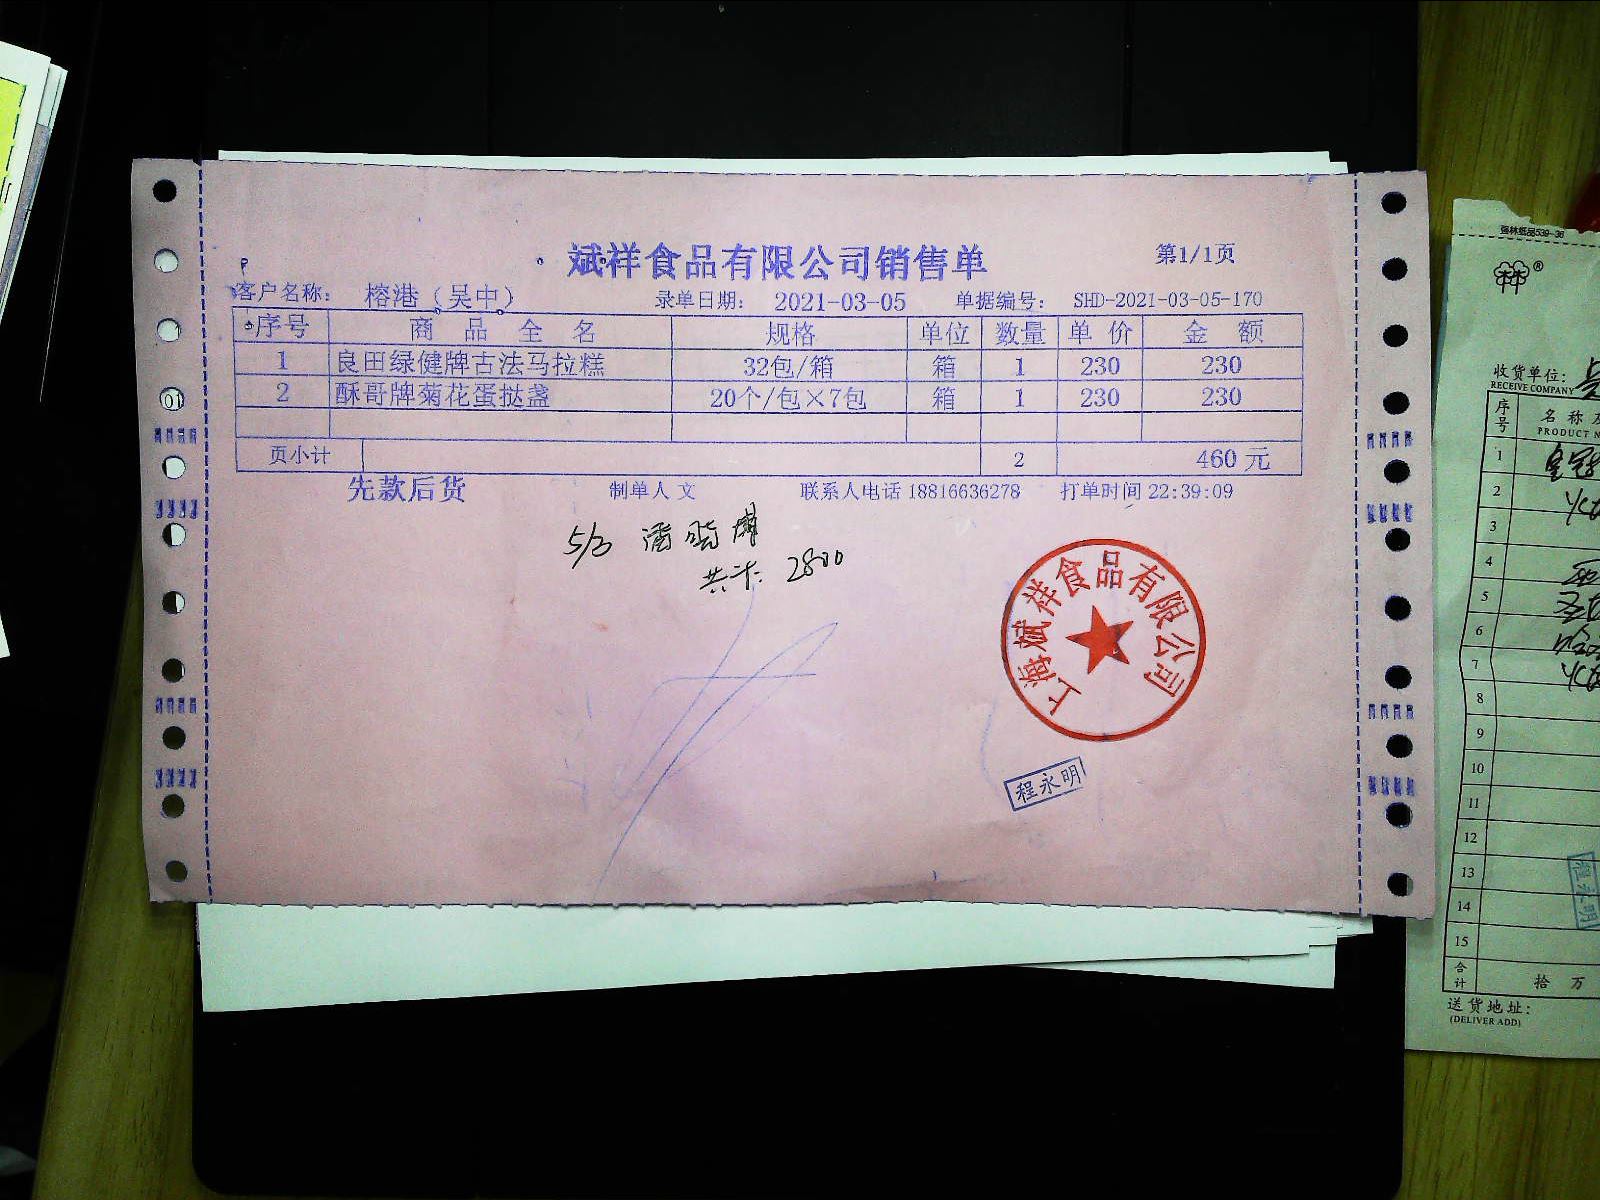 斌祥食品有限公司销售单
第1/1页
客户名称： 榕港（吴中） 录单日期： 2021-03-05 单据编号： SHD-2021-03-05-170
序号 商品全名 规格 单位 数量 单价 金额
1 良田绿健牌古法马拉糕 32包/箱 箱 1 230 230
2 酥哥牌菊花蛋挞盏 20个/包×7包 箱 1 230 230
页小计 2 460 元
先款后货 制单人 文 联系人电话 18816636278 打单时间 22:39:09
5/3 潘
共计: 2800
上海斌祥食品有限公司
程永明
01
强林纸品539-36
林®
收货单位:
RECEIVE COMPANY
序号 名称及
PRODUCT N
1
2
3
4
5
6
7
8
9
10
11
12
13
14
15
合计 拾 万
程永明
送货地址:
(DELIVER ADD)